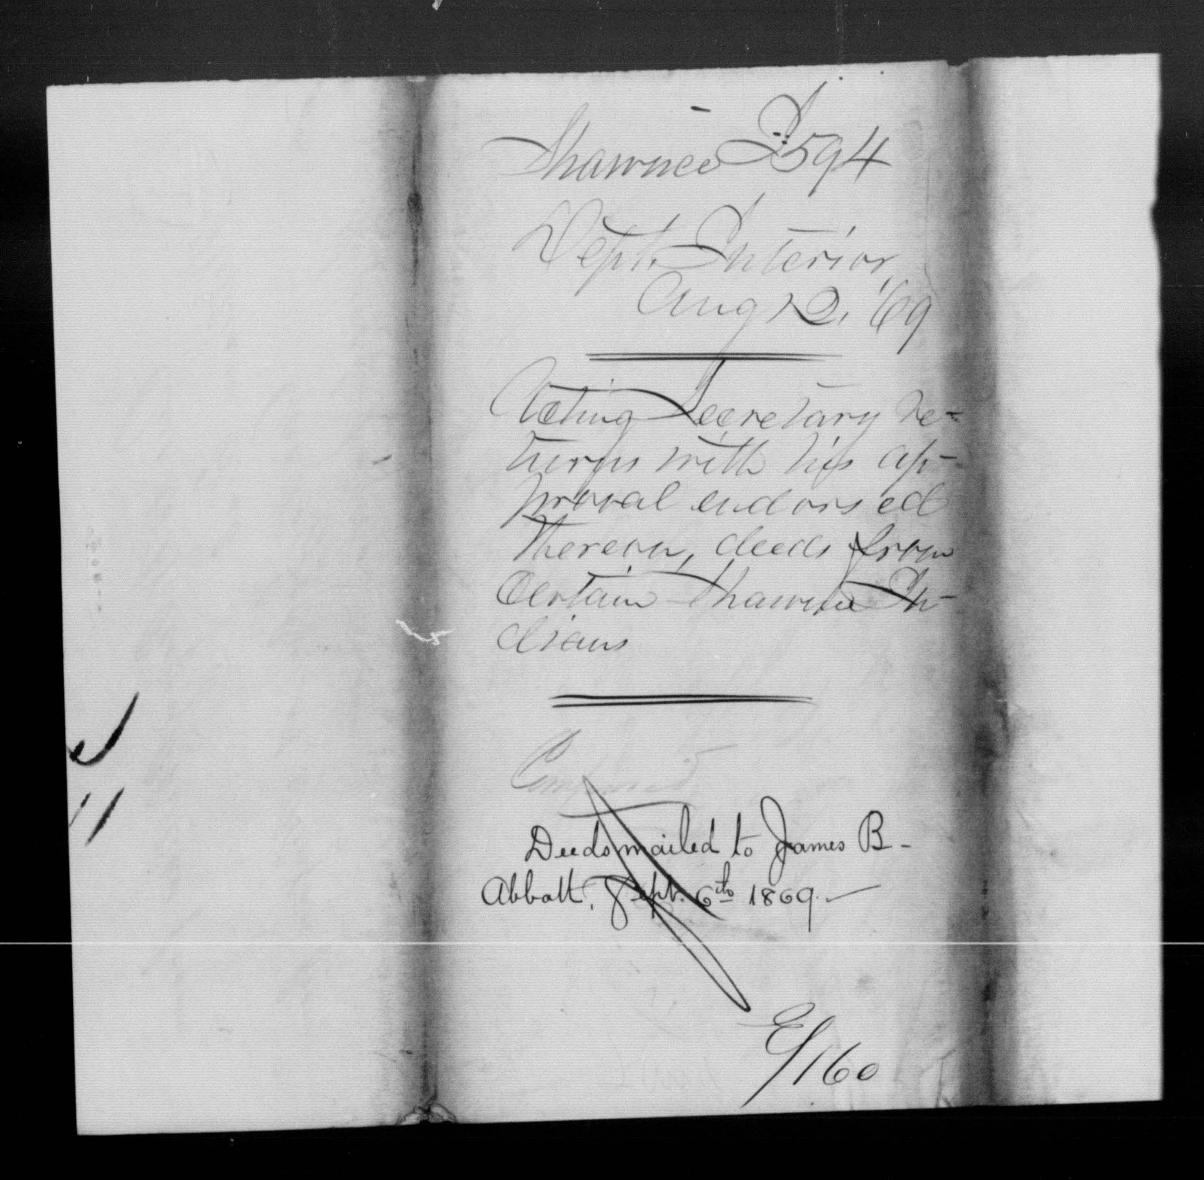 Shawnee I594
Dept. Interior,
Aug 12, '69
Acting Secretary re-
turns with his ap-
proval endorsed
thereon, deeds from
certain Shawnee In-
dians
Deeds mailed to James B-
Abbott, Sept. 6th 1869.—
E/160